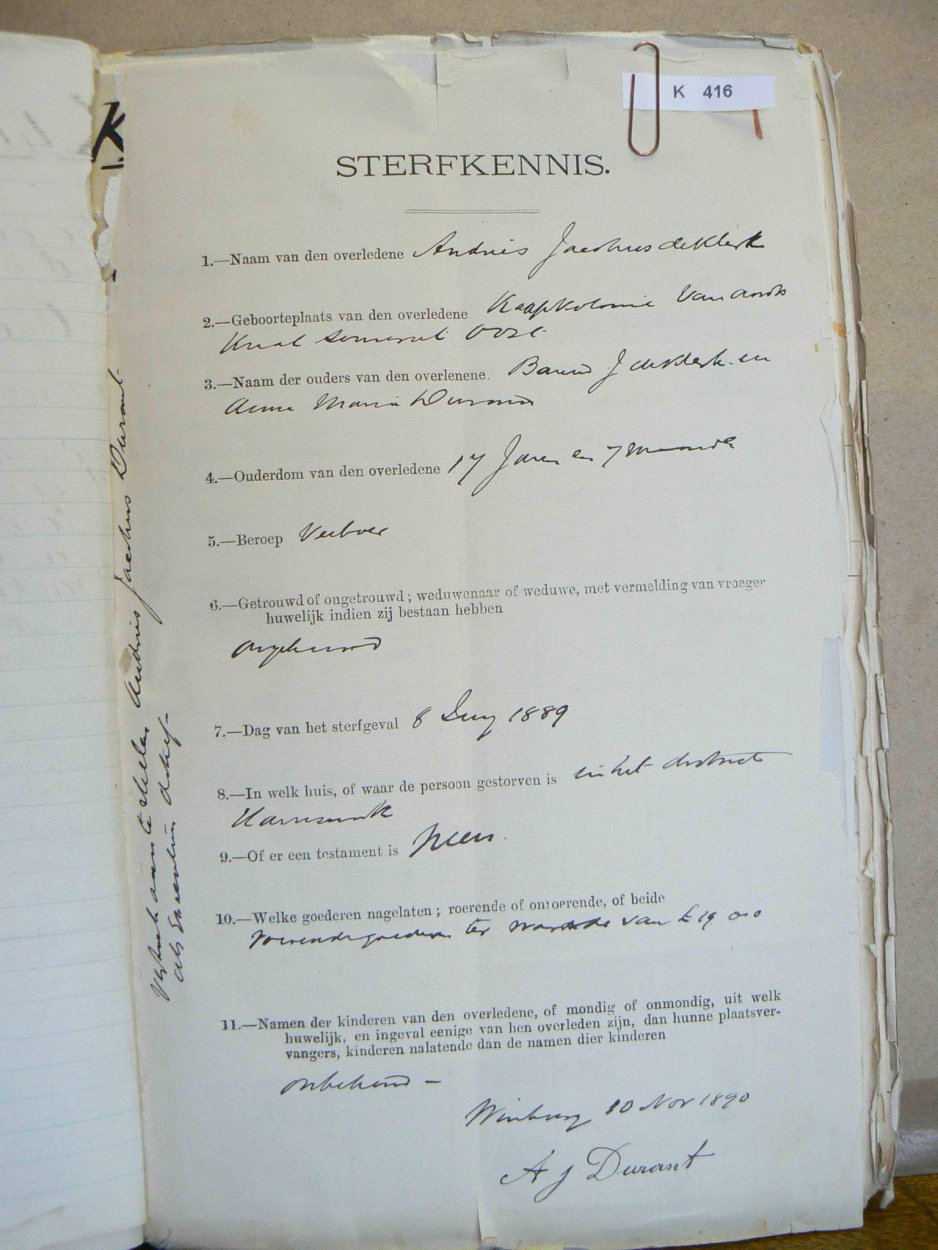 K 416
K
STERFKENNIS.
1.—Naam van den overledene Andries Jacobus de Klerk
2.—Geboorteplaats van den overledene Kaapkolonie Van Aards
Kraal Somerset Oost
3.—Naam der ouders van den overlenene. Barend J de Klerk en
Anna Maria Durand
4.—Ouderdom van den overledene 17 Jaren en 7 maande
5.—Beroep Veeboer
6.—Getrouwd of ongetrouwd; weduwenaar of weduwe, met vermelding van vroeger
huwelijk indien zij bestaan hebben
ongehuwd
7.—Dag van het sterfgeval 8 1889
8.—In welk huis, of waar de persoon gestorven is in het district
9.—Of er een testament is Neen.
10.—Welke goederen nagelaten; roerende of onroerende, of beide
roerende goederen ter waarde van £19 0 0
11.—Namen der kinderen van den overledene, of mondig of onmondig, uit welk
huwelijk, en ingeval eenige van hen overleden zijn, dan hunne plaatsver-
vangers, kinderen nalatende dan de namen dier kinderen
onbekend —
Winburg 10 Nov 1890
A J Durant
aan te stellen Andries Jacobus Durant
als Executeur datief-